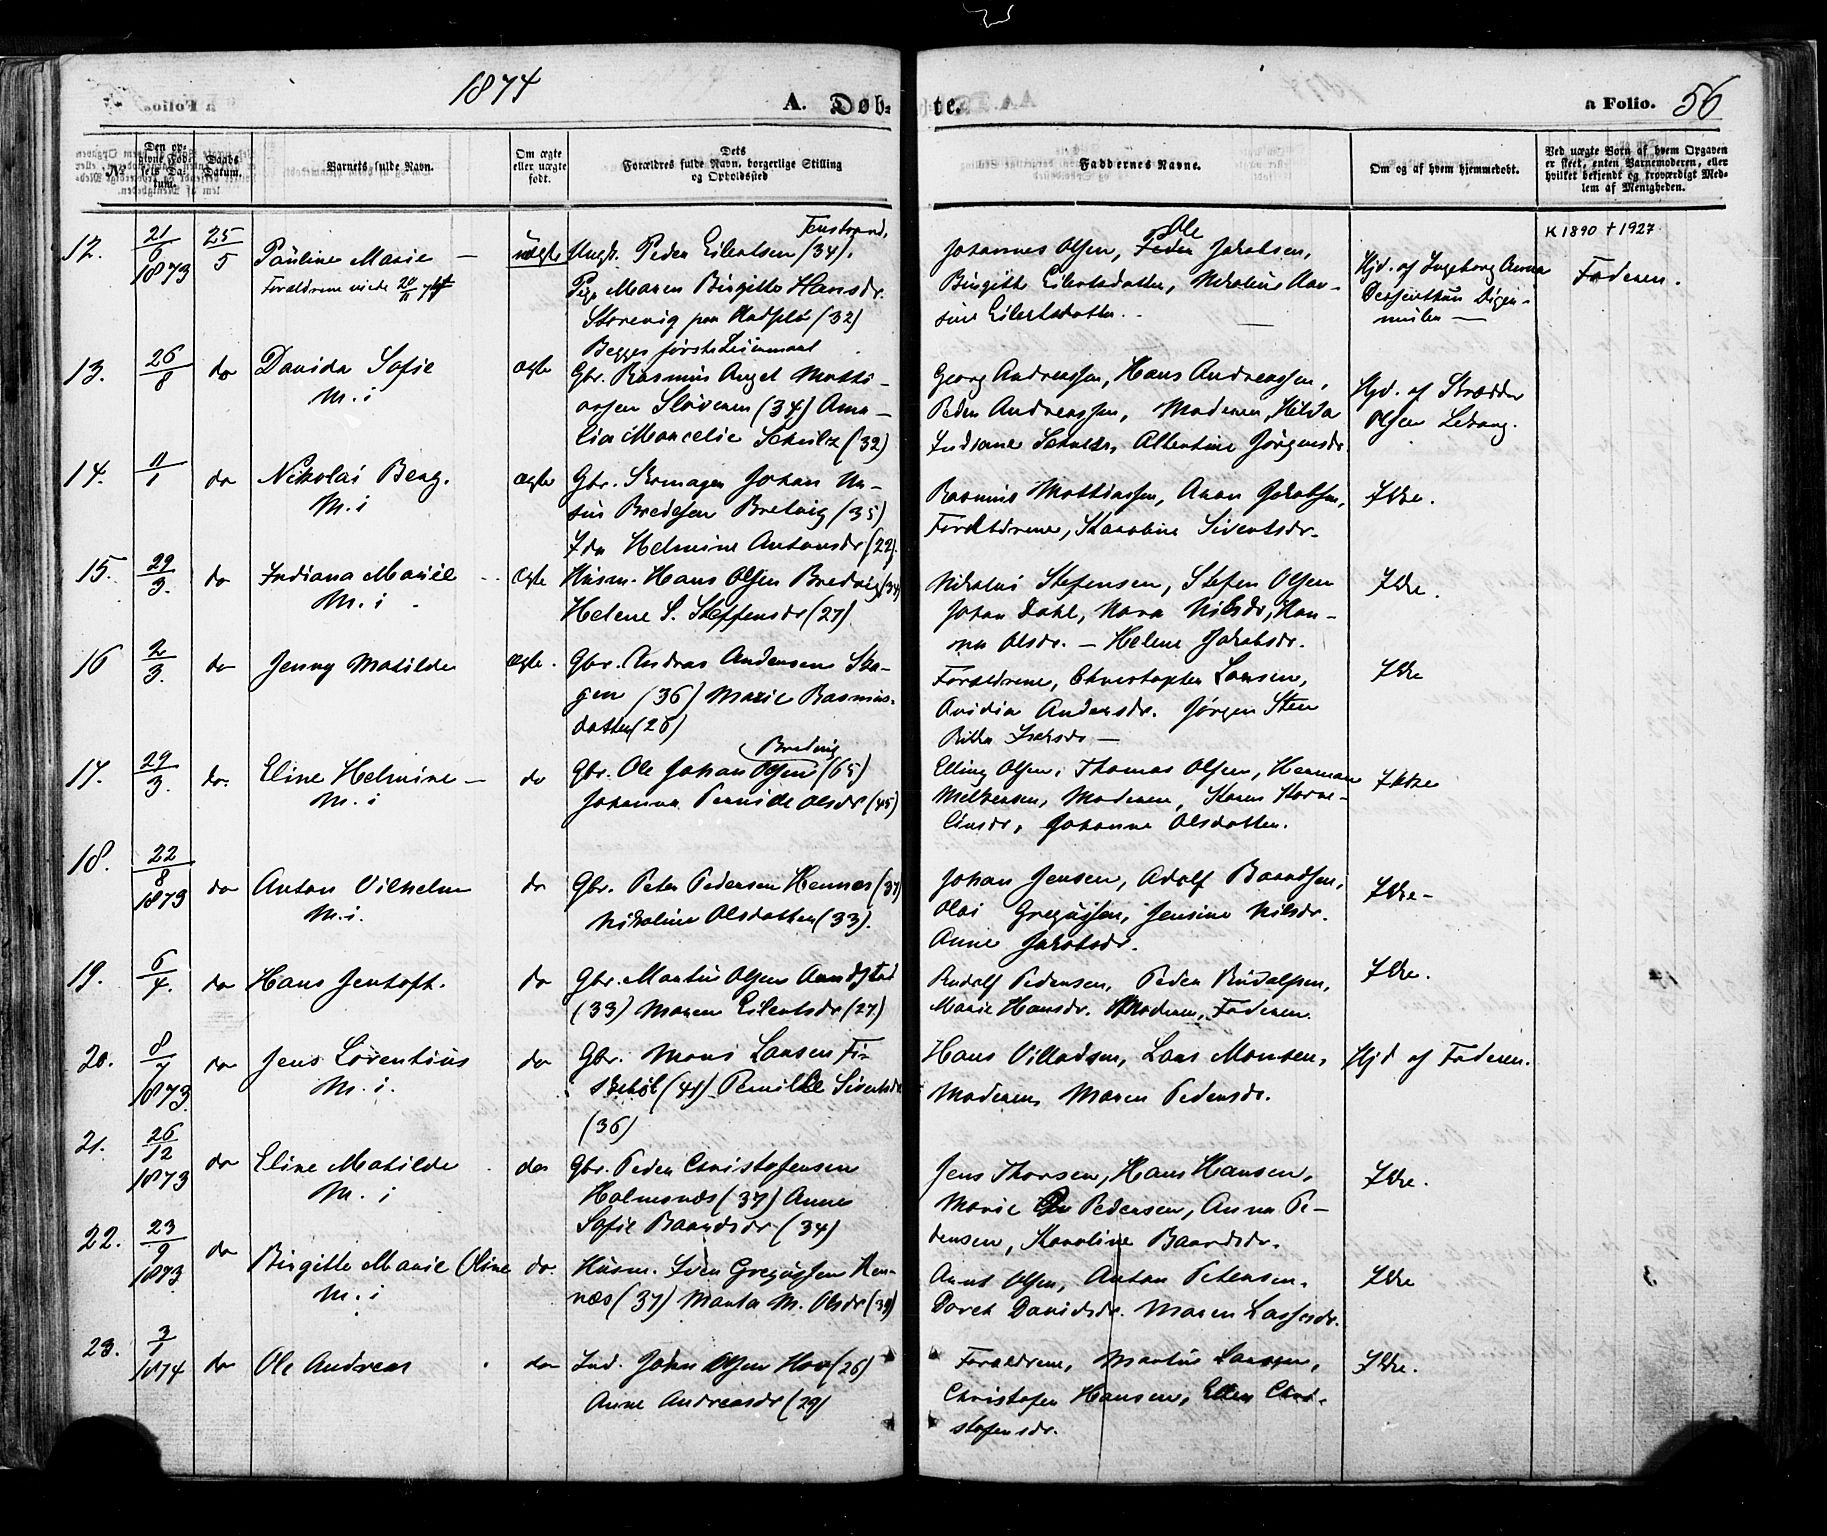 1874
A. Døb-
te.
a Folio. 56
No.
Den op-
givne Fød-
sels Da-
tum.
Daabs
Datum.
Barnets fulde Navn.
Om ægte
eller uægte
født.
Dets
Forældres fulde Navn, borgerlige Stilling
og Opholdssted
Faddernes Navne.
Om og af hvem hjemmedøbt.
Ved uægte Børn af hvem Opgaven
er skeet, enten Barnemoderen, eller
hvilket bekjendt og troværdigt Med-
lem af Menigheden.
12. 21/6 1873 25/5 Pauline Marie
Forældrene viede
uægte Ungk. Peder Eilertsen (34).
Pige Maren Birgitte Hansdr.
Storevig paa (32)
Begges første Leiermaal
Johannes Olsen, Ole Jakobsen,
Birgitte Eilertsdatter, Nikoline
Eilertsdatter.
Hjd. af Ingeborg Anna
Faderen.
K 1890 + 1927
13. 26/8 do Davida Sofie
M. i
ægte Gbr. Rasmus Angel Matti-
assen Støveren (34) Ama-
lia Marcelie Schultz (32)
Georg Andreassen, Hans Andreassen,
Peder Andreassen, Moderen, Hilda
Indiane Schultz, Albertine Jørgensdr.
Hjd. af Skrædder
Olsen Ledang.
14. do Nikolai Berg.
M. i
ægte Gbr. Skomager Johan
Bredesen Bretvig (35)
Ida Helmine Antonsdr (22).
Rasmus Mathiassen, Aron Jakobsen,
Forældrene, Karoline Sivertsdr.
Ikke.
15. 29/3. do Indiana Marie
M. i
ægte Husm. Hans Olsen Bredvig (34)
Helene S. Steffensdr (27)
Nikolai Stefensen, Stefen Olsen
Johan Dahl, Nora Nilsdr, Han-
na Olsdr. - Helene Jakobsdr.
Ikke.
16 2/3. do Jenny Matilde
ægte. Gbr. Andreas Andersen Ska-
gen (36) Marie Rasmus-
datter (26)
Forældrene, Christopher Larsen,
Ovidia Andersdr. Jørgen Steen
Ikke
17. 29/3. do. Eline Helmine
M. i
do Gbr. Ole Johan Olsen Bredvig (65)
Johanna Pernille Olsdr (45)
Elling Olsen, Thomas Olsen, Herman
Meltzersen, Moderen, Karen Korne-
liusdr, Johanne Olsdatter.
Ikke
18. 22/8 1873 do Anton Vilhelm
M. i.
do Gbr. Peter Pedersen Hennes (37)
Nikoline Olsdatter (33).
Johan Jensen, Adolf Baardsen,
Olai Gregussen, Jensine Nilsdr.
Anne Jakobsdr.
Ikke-
19. 6/4. do Hans Jentoft.
do Gbr. Martin Olsen Aandstad
(33) Maren Eilertsdr (27.)
Rudolf Pedersen, Peder Rudolfsen,
Marie Hansdr. Moderen, Faderen.
Ikke.
20. 8/7 1873 do Jens Lorentius
M. i.
do Gbr. Mons Larsen Fi-
skebøl (41) Pernille Sivertsdr
(36)
Hans Villadsen, Lars Monsen,
Moderen, Maren Pedersdr.
Hjd af Faderen.
21. 26/12 1873 do Eline Matilde
M. i
do Gbr. Peder Christofersen
Holmesnæs (37) Anne
Sofie Baardsdr (34)
Jens Thorsen, Hans Hansen,
Marie Pedersen, Anna Pe-
dersen, Karoline Baardsdr.
Ikke.
22. 23/9 1873 do Birgitte Marie Oline
M. i
do. Husm. Iver Gregussen Hen-
næs (37) Marta M. Olsdr (39)
Arnt Olsen, Anton Petersen.
Doret Davidsdr. Maren Lassesdr.
Ikke
23. 3/1 1874 do Ole Andreas
do Ind. Johan Olsen Hov (26)
Anne Andreasdr (29)
Forældrene, Martin Larsen,
Christofer Hansen, Ellen Chri-
stofersdr.
Ikke.